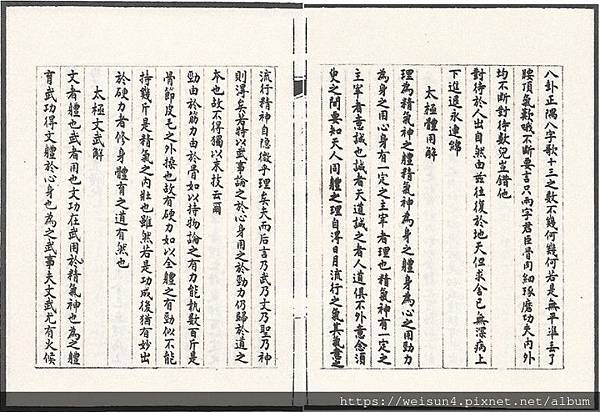 八卦正隅八字歌十三之數不幾何幾何若是無平準丟了
腰頂氣歎哦不斷要言只兩字君臣骨肉細琢磨功夫內外
均不斷對待數兒豈錯他
對待於人出自然由茲往復於地天但求舍己無深病上
下進退永連綿
太極體用解
理為精氣神之體精氣神為身之體身為心之用勁力
為身之用心身有一定之主宰者理也精氣神有一定之
主宰者意誠也誠者天道誠之者人道俱不外意念須
臾之間要知天人同體之理自得日月流行之氣其氣意之
流行精神自隱微乎理矣夫而后言乃武乃文乃聖乃神
則得矣若特以武事論之於心身用之於勁力仍歸於道之
本也故不得獨以末技云爾
勁由於筋力由於骨如以持物論之有力能執數百斤是
骨節皮毛之外操也故有硬力如以全體之有勁似不能
持幾斤是精氣之內壯也雖然若是功成後猶有妙出
於硬力者修身體育之道有然也
太極文武解
文者體也武者用也文功在武用於精氣神也為之體
育武功得文體於心身也為之武事夫文武尤有火候
https://weisun4.pixnet.net/album